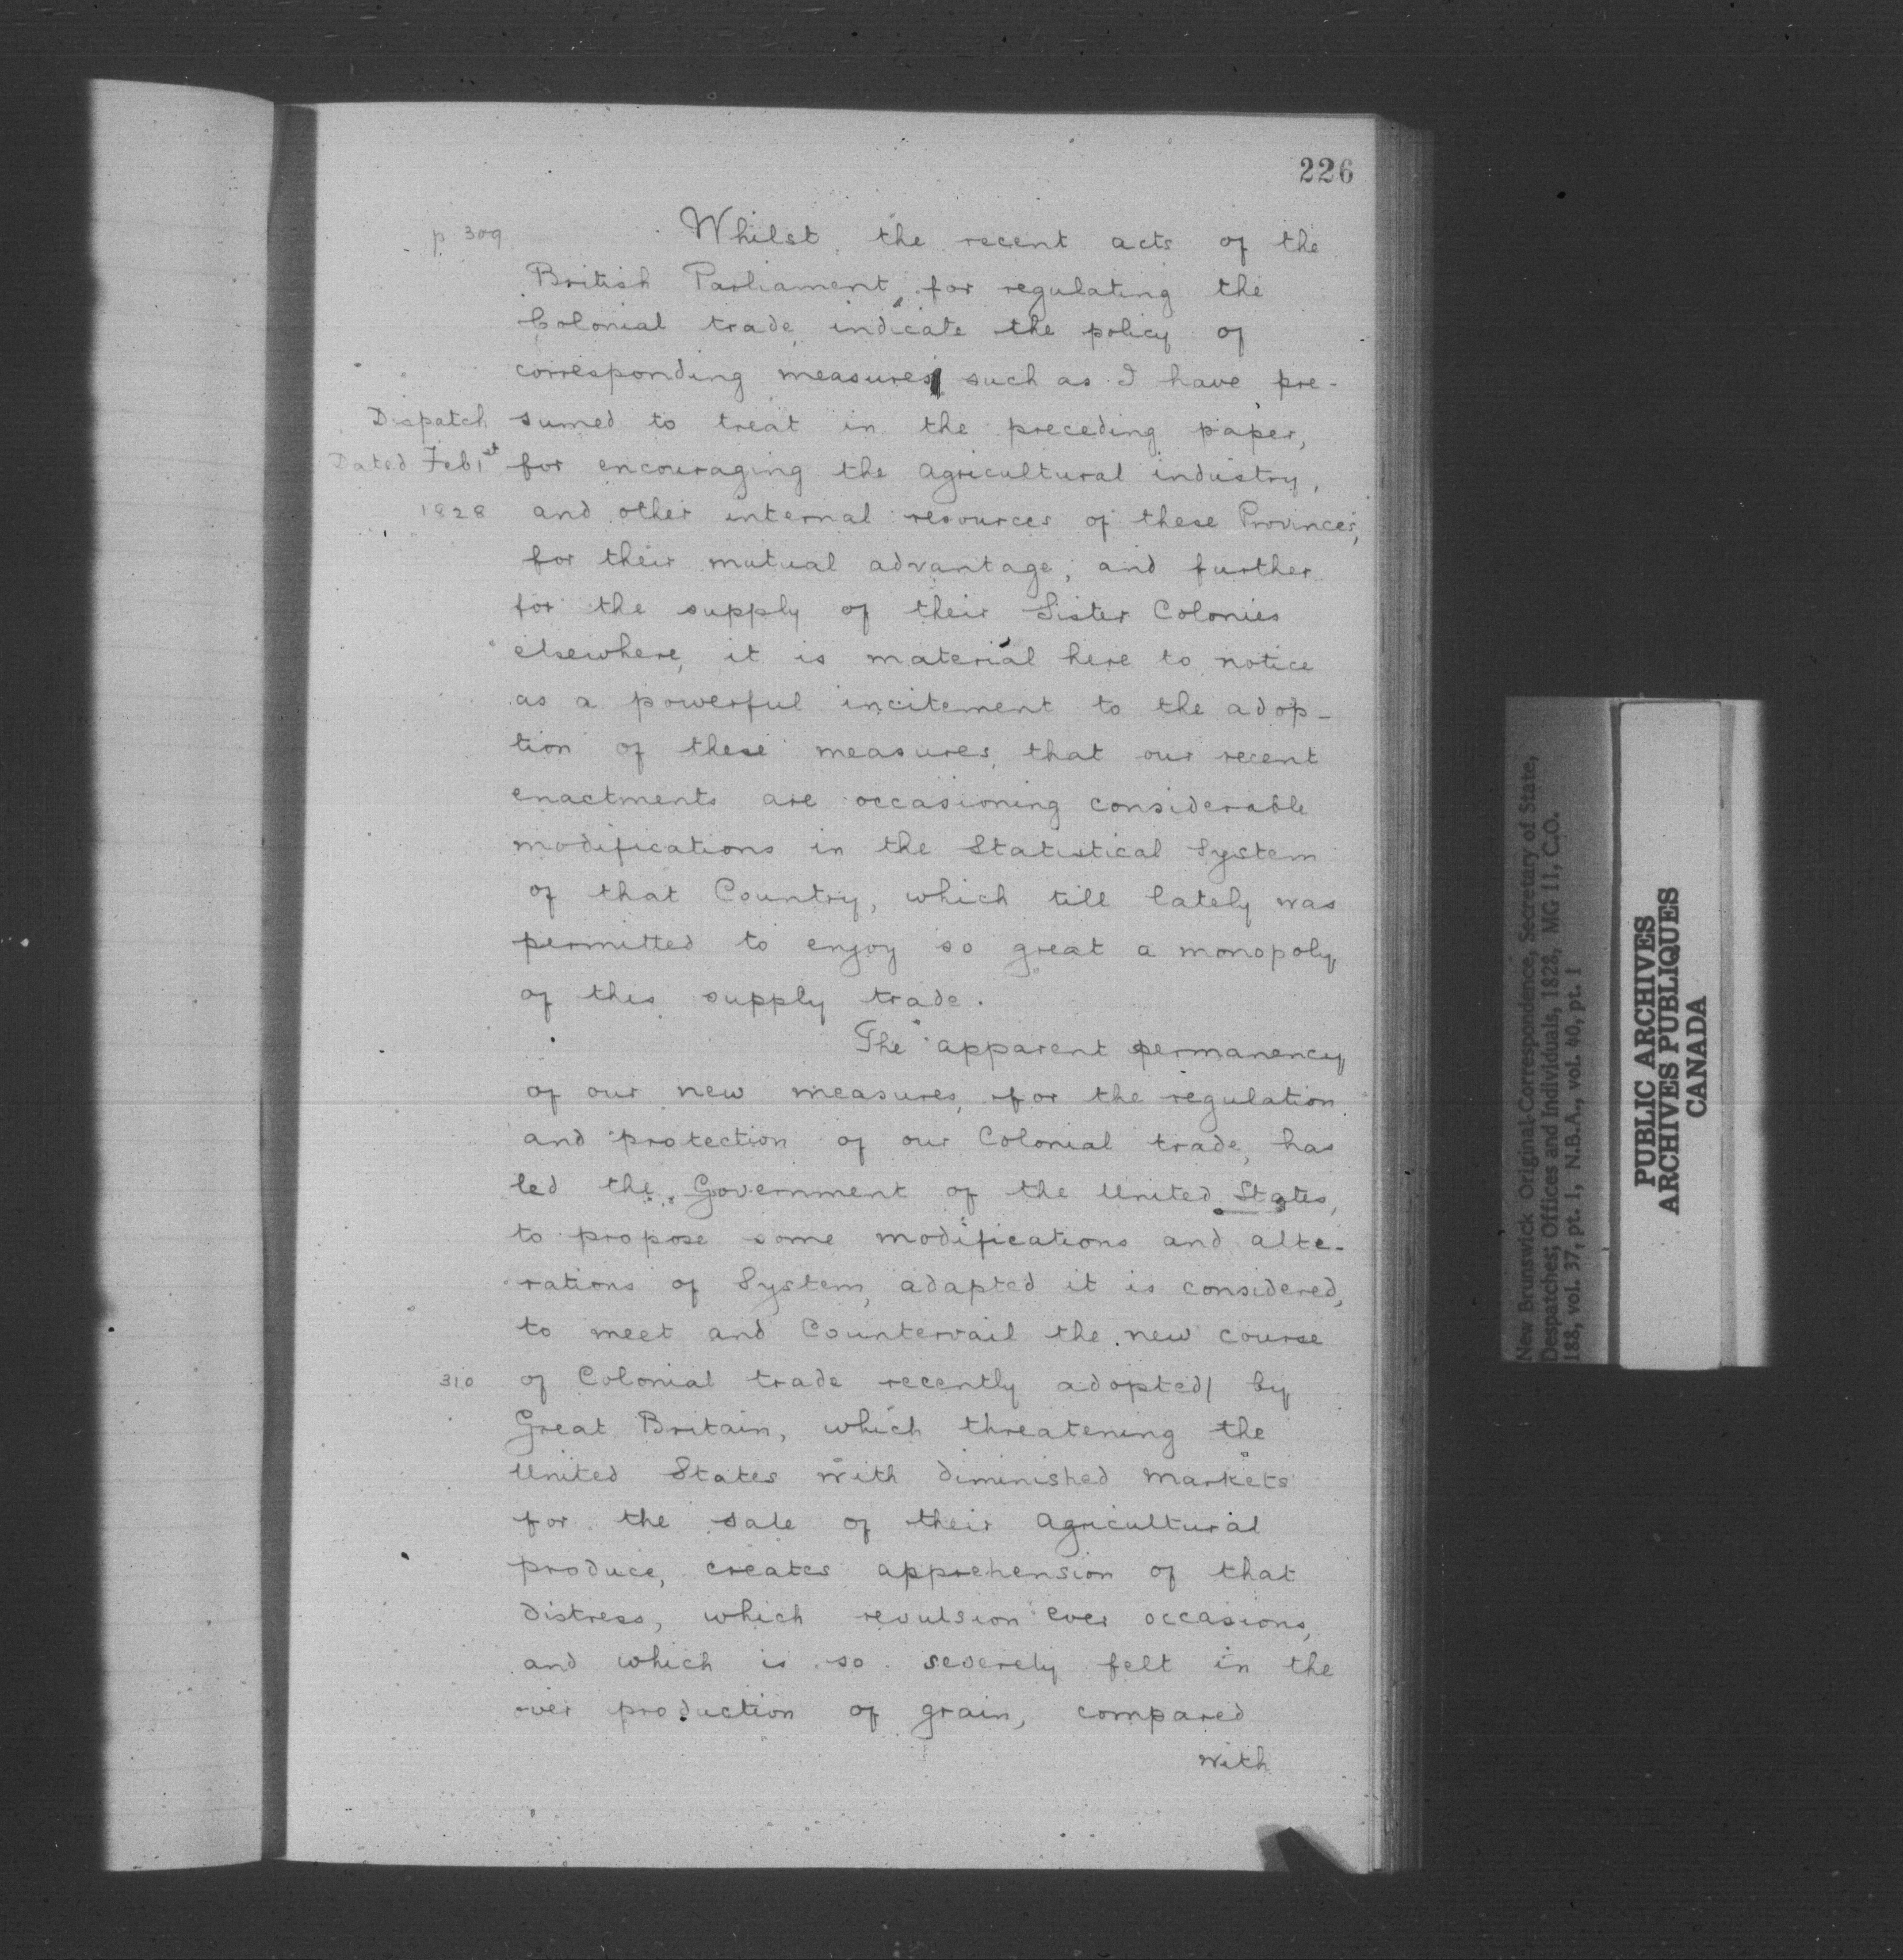 226
p. 309
Whilst the recent acts of the
British Parliament, for regulating the
Colonial trade, indicate the policy of
corresponding measures, such as I have pre-
Dispatch
sumed to treat in the preceding paper,
Dated Feb 1st
for encouraging the Agricultural industry,
1828
and other internal resources of these Provinces,
for their mutual advantage, and further
for the supply of their Sister Colonies
elsewhere, it is material here to notice
as a powerful incitement to the adop-
tion of these measures, that our recent
enactments are occasioning considerable
modifications in the Statistical System
of that Country, which till lately was
permitted to enjoy so great a monopoly,
of this supply trade.
The apparent permanency,
of our new measures, for the regulation
and protection of our Colonial trade, has
led the Government of the United States,
to propose some modifications and alte-
rations of System, adapted it is considered,
to meet and Countervail the new course
310
of Colonial trade recently adopted/ by
Great Britain, which threatening the
United States with diminished Markets
for the sale of their Agricultural
produce, creates apprehension of that
distress, which revulsion ever occasions,
and which is so severely felt in the
over production of grain, compared
with
New Brunswick Original Correspondence, Secretary of State,
Despatches; Offices and Individuals, 1828, MG 11, C.O.
188, vol. 37, pt. 1, N.B.A., vol. 40, pt. 1
PUBLIC ARCHIVES
ARCHIVES PUBLIQUES
CANADA